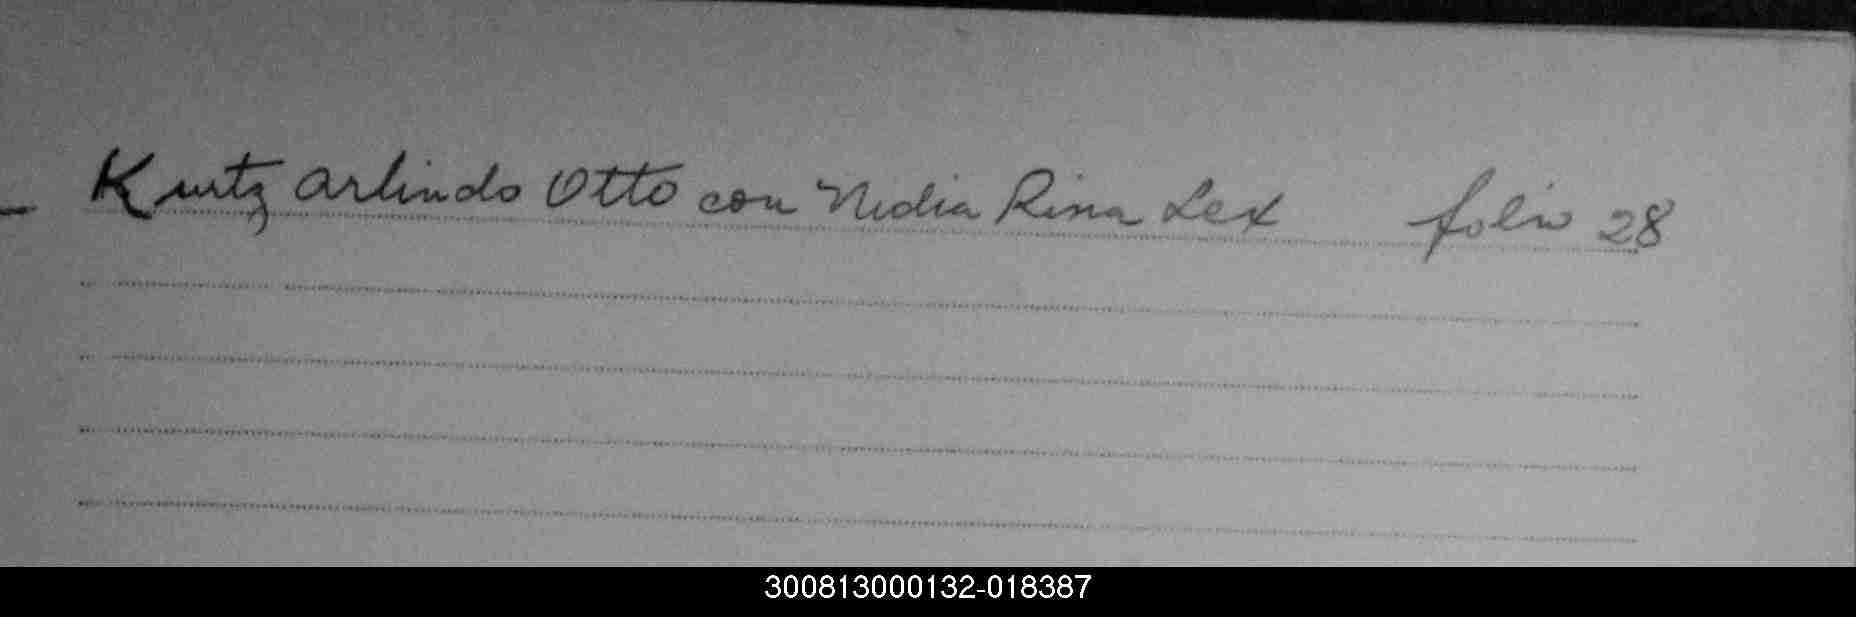 Kurtz Arlindo Otto con Nidia Rina Lex folio 28
300813000132-018387